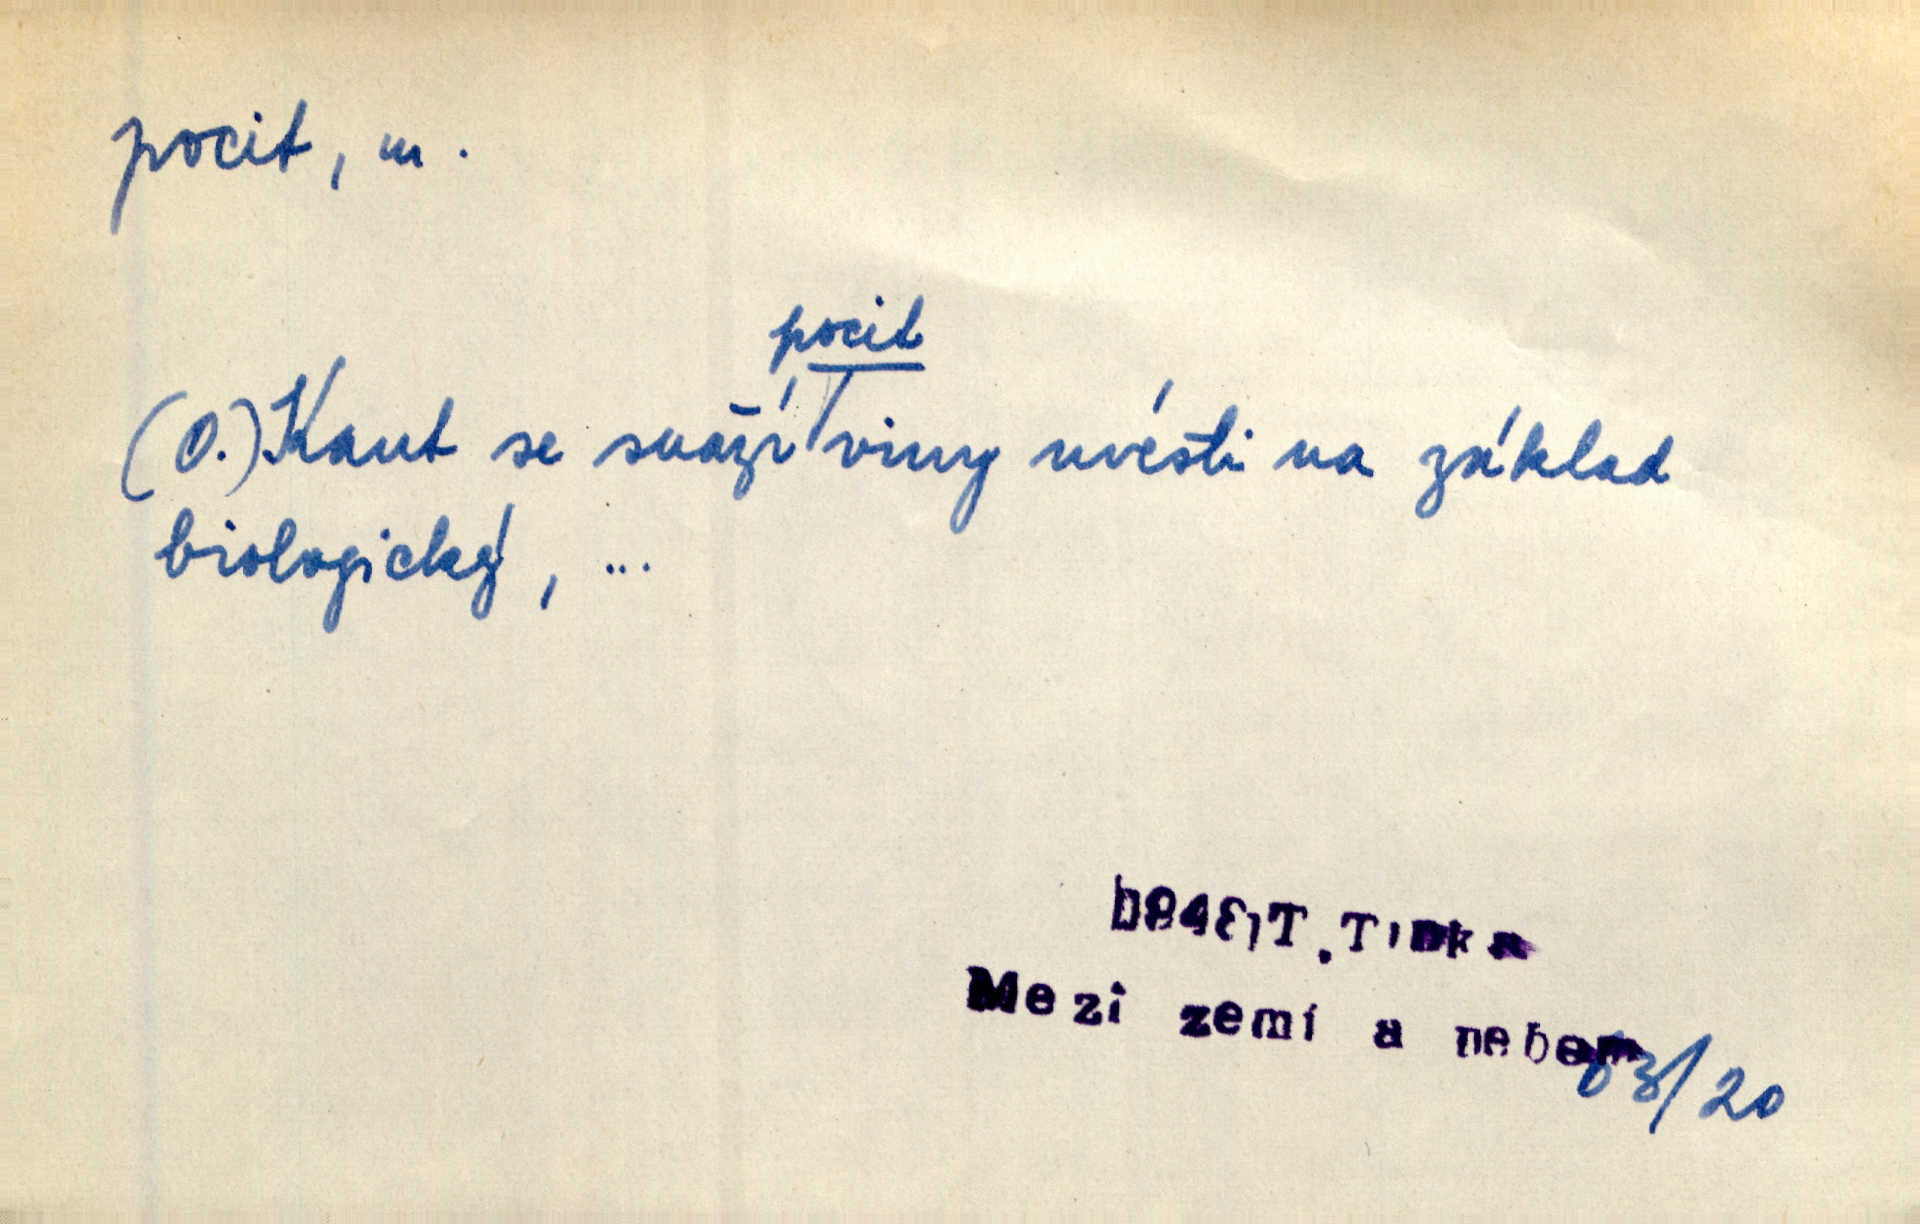 pocit, m.
pocit
(O.) Kant se snaží viny uvésti na základ
biologický, ...
T. Trnka
Mezi zemí a nebem
63/20